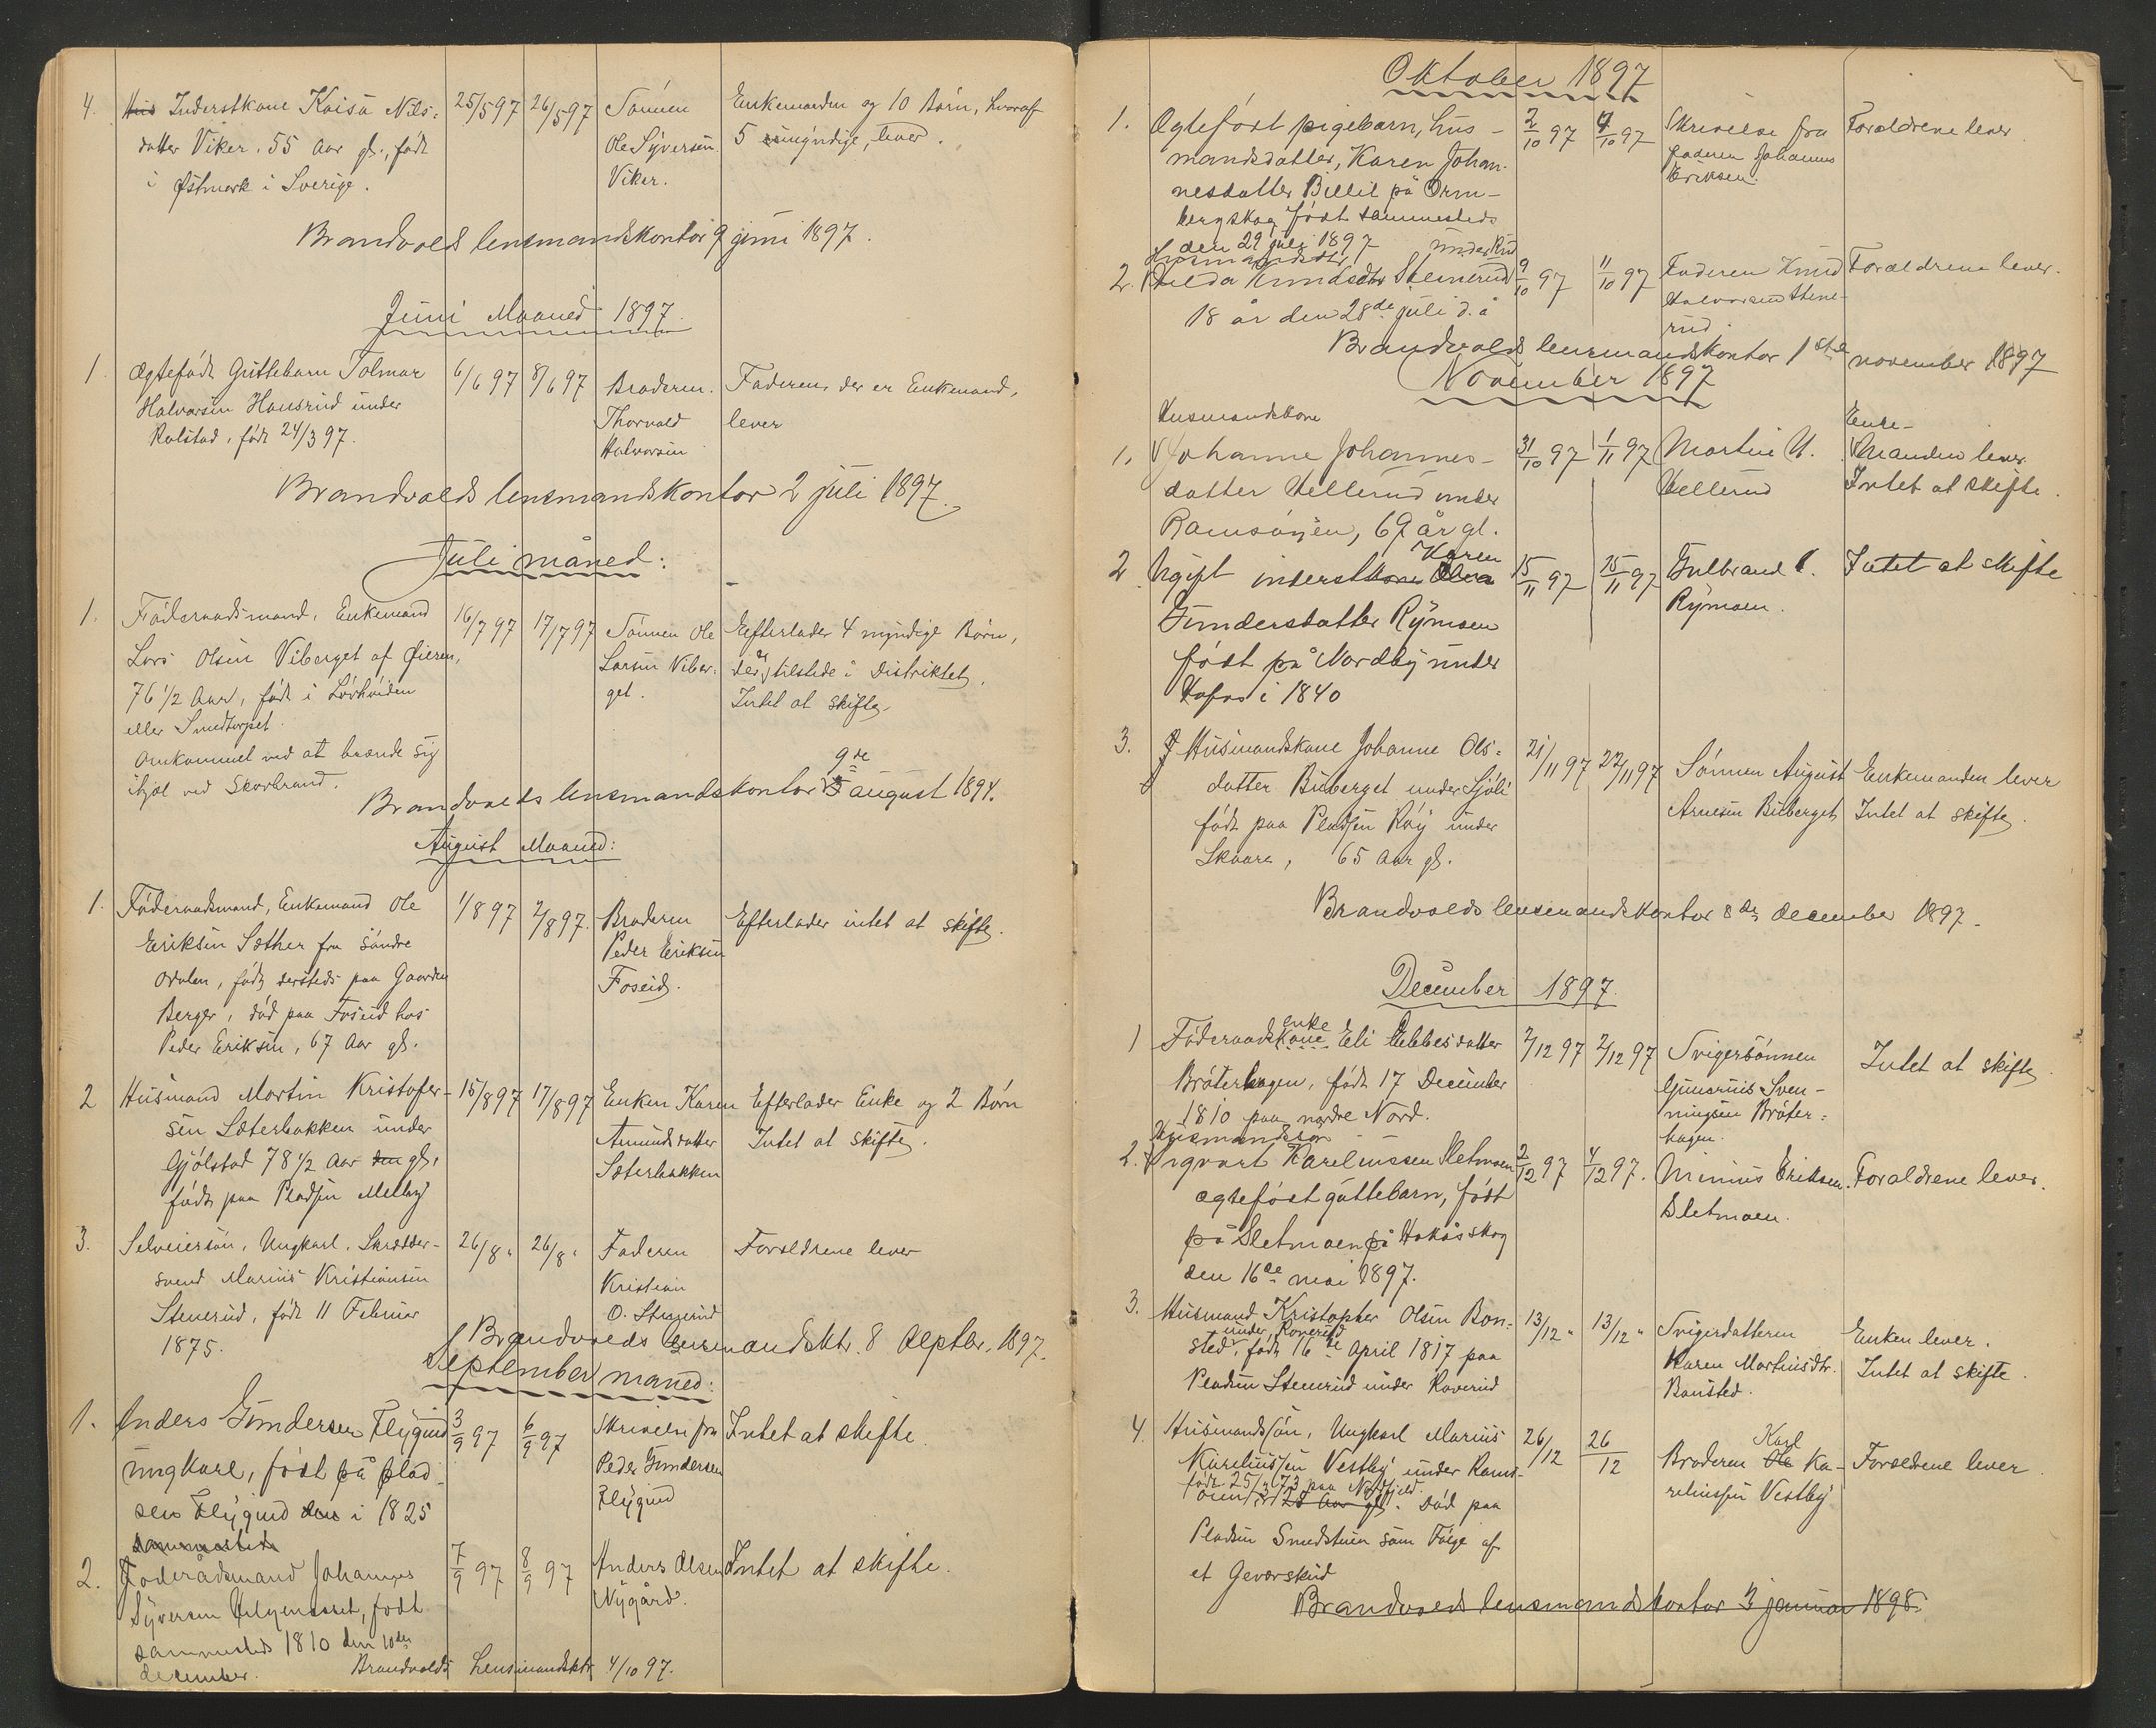 4. Inderstkone Kaisa Nils= 25/5 97 26/5 97 Sønnen Enkemanden og 10 Børn, hvoraf
datter Viker. 55 Aar gl., født Ole Syversen 5 umyndige, lever.
i Østmark i Sverige. Viker.
Brandvolds lensmandskontor 9 juni 1897.
Juni Maaned 1897.
1 Ægtefødt Guttebarn Tolmar 6/6 97 8/6 97 Broderen Faderen, der er Enkemand,
Halvorsen Hansrud under Thorvald lever
Rolstad, født 24/3 97. Halvorsen
Brandvolds lensmandskontor 2 juli 1897.
Juli måned:
1. Føderaadsmand, Enkemand 16/7 97 17/7 97 Sønnen Ole Efterlader 4 myndige Børn,
Lars Olsen Viberget af Øieren, Larsen Viber- der er tilstede i Distriktet.
76 1/2 Aar, født i get. Intet at skifte.
eller Smedtorpet.
Omkommet ved at brænde sig
ihjel ved Skovbrand.
9de
Brandvolds lensmandskontor 5 august 1897.
August Maaned:
1. Føderaadsmand, Enkemand Ole 1/8 97 2/8 97. Broderen Efterlader intet at skifte.
Eriksen Sæther fra søndre Peder Eriksen
Odalen, født dersteds paa Gaarden Foseid.
Berger, død paa Foseid hos
Peder Eriksen, 67 Aar gl.
2 Husmand Martin Kristofer- 15/8 97 17/8 97 Enken Karen Efterlader Enke og 2 Børn
sen Sæterbakken under Amundsdatter Intet at skifte.
Gjølstad 78 1/2 Aar den gl. Sæterbakken
født paa Pladsen Melby
3. Selveiersøn, Ungkarl, Skrædder- 26/8 " 26/8 " Faderen Forældrene lever
svend Marius Kristiansen Kristian
Stenerud, født 11 Februar O. Stenerud
1875.
Brandvolds Lensmandsktr. 8 septbr. 1897.
September måned:
1. Anders Gundersen Flygind 3/9 97 6/9 97 Skrivelse fra Intet at skifte.
ungkarl, født på plad- Peder Gundersen
sen Flygind den i 1825 Flygind
sammesteds
2. Føderådsmand Johannes 7/9 97 8/9 97 Anders Olsen Intet at skifte.
Syversen, født Nygård.
sammesteds 1810 den 10de
december. Brandvolds Lensmandsktr 4/10 97.
Oktober 1897
1. Ægteført pigebarn, hus- 2/10 97 4/10 97 Skrivelse fra Forældrene lever
mandsdatter, Karen Johan- faderen Johannes
nesdatter Billit på Orm- Eriksen.
bergskog født sammesteds
den 29 juli 1897
Husmandsdtr under Rud
2. Hilda Knudsdtr Stenerud 9/10 97 11/10 97 Faderen Knud Forældrene lever.
18 år den 28de juli d. å Halvorsen Stene-
rud.
Brandvolds lensmandskontor 1ste november 1897
November 1897
Husmandskone Enke-
1. Johanne Johannes- 31/10 97 1/11 97 Martin U. manden lever.
datter Vellerud under Vellerud Intet at skifte.
Ramsøyen, 69 år gl.
Karen
2. Ugift inderstkone Olea 15/11 97 25/11 97 Gulbrand Intet at skifte
Gundersdatter Rymoen Rymoen.
født på Nordby under
Hofos i 1840
3. Husmandskone Johanne Ols= 21/11 97 22/11 97 Sønnen August Enkemanden lever
datter Buberget under Sjøli Arnesen Buberget Intet at skifte.
født paa Pladsen Røy under
Skaare, 65 Aar gl.
Brandvolds lensmandskontor 8de december 1897.
December 1897.
enke
1 Føderaadskone Eli Ebbesdatter 2/12 97 2/12 97 Svigersønnen Intet at skifte.
Bråterhagen, født 17 December Gunerius Sven-
1810 paa nordre Nord. ningsen Bråter=
hagen.
Husmandssøn
2. Sigvart Karelinssen Sletmoen 2/12 97 4/12 97. Minius Eriksen Forældrene lever.
ægteført guttebarn, født Sletmoen.
på Sletmoen på Hokåsskog
den 16de mai 1897.
3. Husmand Kristopher Olsen Bon= 13/12 " 13/12 " Svigerdatteren Enken lever.
under Roverud
sted, født 16de April 1817 paa Karen Martinsdtr. Intet at skifte.
Pladsen Stenerud under Roverud Bonsted.
4. Husmandssøn, Ungkarl Marius 26/12 26/12 Broderen Ole Karl Ka- Forældrene lever
Kareliussen Vestby under Rams- reliussen Vestby
født 25/3 1873 paa Nordfjeld.
øien, 25 Aar gl. Død paa
Pladsen Smedstuen som Følge af
et Geværskud
Brandvolds lensmandskontor 3 januar 1898.